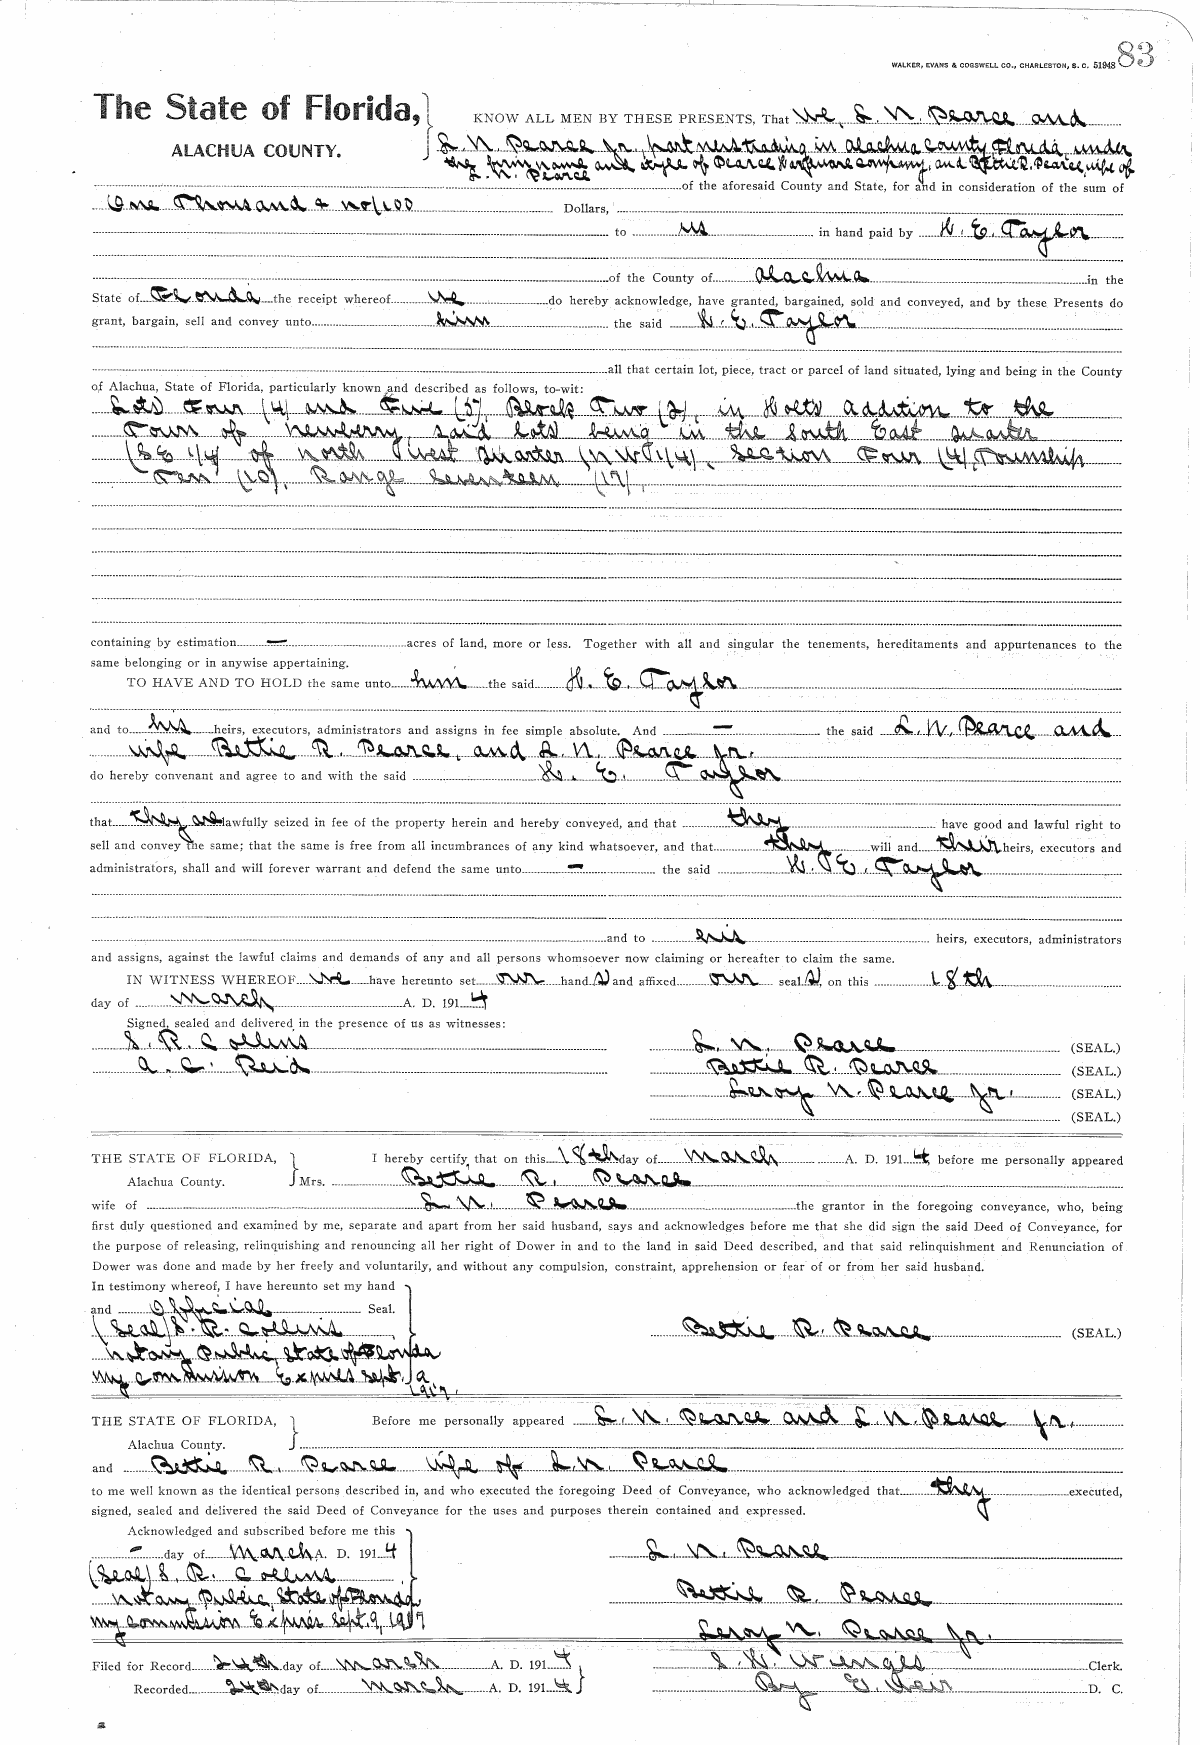 83
WALKER, EVANS & COGSWELL CO., CHARLESTON, S. C. 51948
The State of Florida,
ALACHUA COUNTY.
KNOW ALL MEN BY THESE PRESENTS, That We, L. N. Pearce and
L. N. Pearce Jr., partners trading in Alachua County Florida, under
the firm name and style of Pearce Hardware Company, and Bettie R. Pearce, wife of
L. N. Pearce
of the aforesaid County and State, for and in consideration of the sum of
One Thousand & no/100 Dollars,
to us in hand paid by H. E. Taylor
of the County of Alachua in the
State of Florida the receipt whereof we do hereby acknowledge, have granted, bargained, sold and conveyed, and by these Presents do
grant, bargain, sell and convey unto him the said H. E. Taylor
all that certain lot, piece, tract or parcel of land situated, lying and being in the County
of Alachua, State of Florida, particularly known and described as follows, to-wit:
Lots Four (4) and Five (5), Block Two (2), in Holts addition to the
Town of Newberry, said lots being in the South East Quarter
(SE 1/4) of North West Quarter (NW 1/4), Section Four (4), Township
Ten (10), Range Seventeen (17).
containing by estimation — acres of land, more or less. Together with all and singular the tenements, hereditaments and appurtenances to the
same belonging or in anywise appertaining.
TO HAVE AND TO HOLD the same unto him the said H. E. Taylor
and to his heirs, executors, administrators and assigns in fee simple absolute. And — the said L. N. Pearce and
wife Bettie R. Pearce, and L. N. Pearce Jr.
do hereby convenant and agree to and with the said H. E. Taylor
that they are lawfully seized in fee of the property herein and hereby conveyed, and that they have good and lawful right to
sell and convey the same; that the same is free from all incumbrances of any kind whatsoever, and that they will and their heirs, executors and
administrators, shall and will forever warrant and defend the same unto — the said H. E. Taylor
and to his heirs, executors, administrators
and assigns, against the lawful claims and demands of any and all persons whomsoever now claiming or hereafter to claim the same.
IN WITNESS WHEREOF we have hereunto set our hand s and affixed our seal s, on this 18th
day of March A. D. 1914
Signed, sealed and delivered in the presence of us as witnesses:
S. R. Collins
A. C. Reid
L. N. Pearce (SEAL.)
Bettie R. Pearce (SEAL.)
Leroy N. Pearce Jr. (SEAL.)
(SEAL.)
THE STATE OF FLORIDA,
Alachua County.
I hereby certify, that on this 18th day of March A. D. 1914, before me personally appeared
Mrs. Bettie R. Pearce
wife of L. N. Pearce the grantor in the foregoing conveyance, who, being
first duly questioned and examined by me, separate and apart from her said husband, says and acknowledges before me that she did sign the said Deed of Conveyance, for
the purpose of releasing, relinquishing and renouncing all her right of Dower in and to the land in said Deed described, and that said relinquishment and Renunciation of
Dower was done and made by her freely and voluntarily, and without any compulsion, constraint, apprehension or fear of or from her said husband.
In testimony whereof, I have hereunto set my hand
and Official Seal.
(Seal) S. R. Collins
Bettie R. Pearce (SEAL.)
Notary Public, State of Florida
My Commission Expires Sept. 9
1917.
THE STATE OF FLORIDA,
Alachua County.
Before me personally appeared L. N. Pearce and L. N. Pearce Jr.
and Bettie R. Pearce wife of L. N. Pearce
to me well known as the identical persons described in, and who executed the foregoing Deed of Conveyance, who acknowledged that they executed,
signed, sealed and delivered the said Deed of Conveyance for the uses and purposes therein contained and expressed.
Acknowledged and subscribed before me this
— day of March A. D. 1914
(Seal) S. R. Collins
Notary Public, State of Florida
My Commission Expires Sept. 9, 1917
L. N. Pearce
Bettie R. Pearce
Leroy N. Pearce Jr.
Filed for Record 24th day of March A. D. 1914
Recorded 24th day of March A. D. 1914
S. H. Wienges Clerk.
By E. Weir D. C.